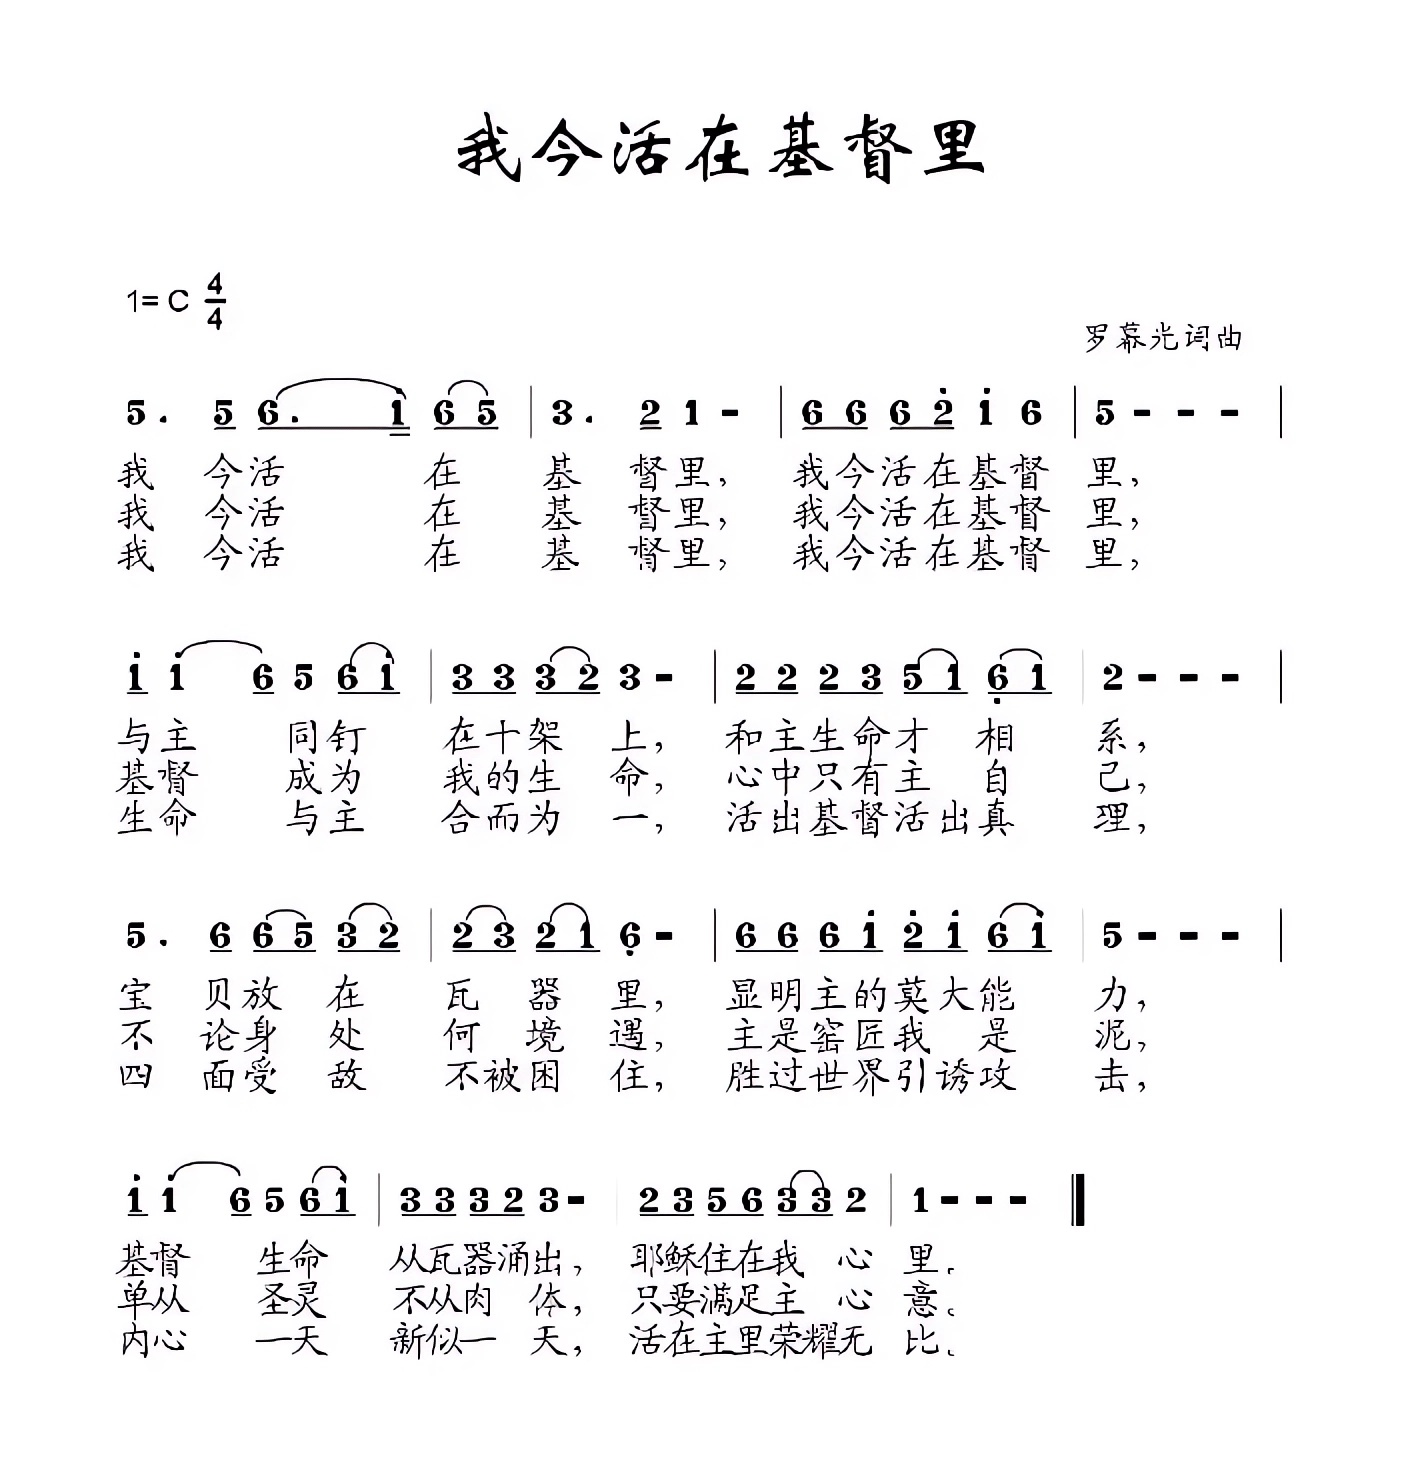 我今活在基督里
1= C 4/4
罗幕光词曲
5 . 5 6 . i 6 5 | 3 . 2 1 - | 6 6 6 2̇ i 6 | 5 - - - |
我 今活 在 基 督里， 我今活在基督 里，
我 今活 在 基 督里， 我今活在基督 里，
我 今活 在 基 督里， 我今活在基督 里，
i i 6 5 6 i | 3 3 3 2 3 - | 2 2 2 3 5 1 6̣ 1 | 2 - - - |
与主 同钉 在十架 上， 和主生命才 相 系，
基督 成为 我的生 命， 心中只有主 自 己，
生命 与主 合而为 一， 活出基督活出真 理，
5 . 6 6 5 3 2 | 2 3 2 1 6̣ - | 6 6 6 i 2̇ i 6 i | 5 - - - |
宝 贝放 在 瓦 器 里， 显明主的莫大能 力，
不 论身 处 何 境 遇， 主是窑匠我 是 泥，
四 面受 敌 不被困 住， 胜过世界引诱攻 击，
i i 6 5 6 i | 3 3 3 2 3 - | 2 3 5 6 3 3 2 | 1 - - - ‖
基督 生命 从瓦器涌出， 耶稣住在我 心 里。
单从 圣灵 不从肉 体， 只要满足主 心 意。
内心 一天 新似一 天， 活在主里荣耀无 比。